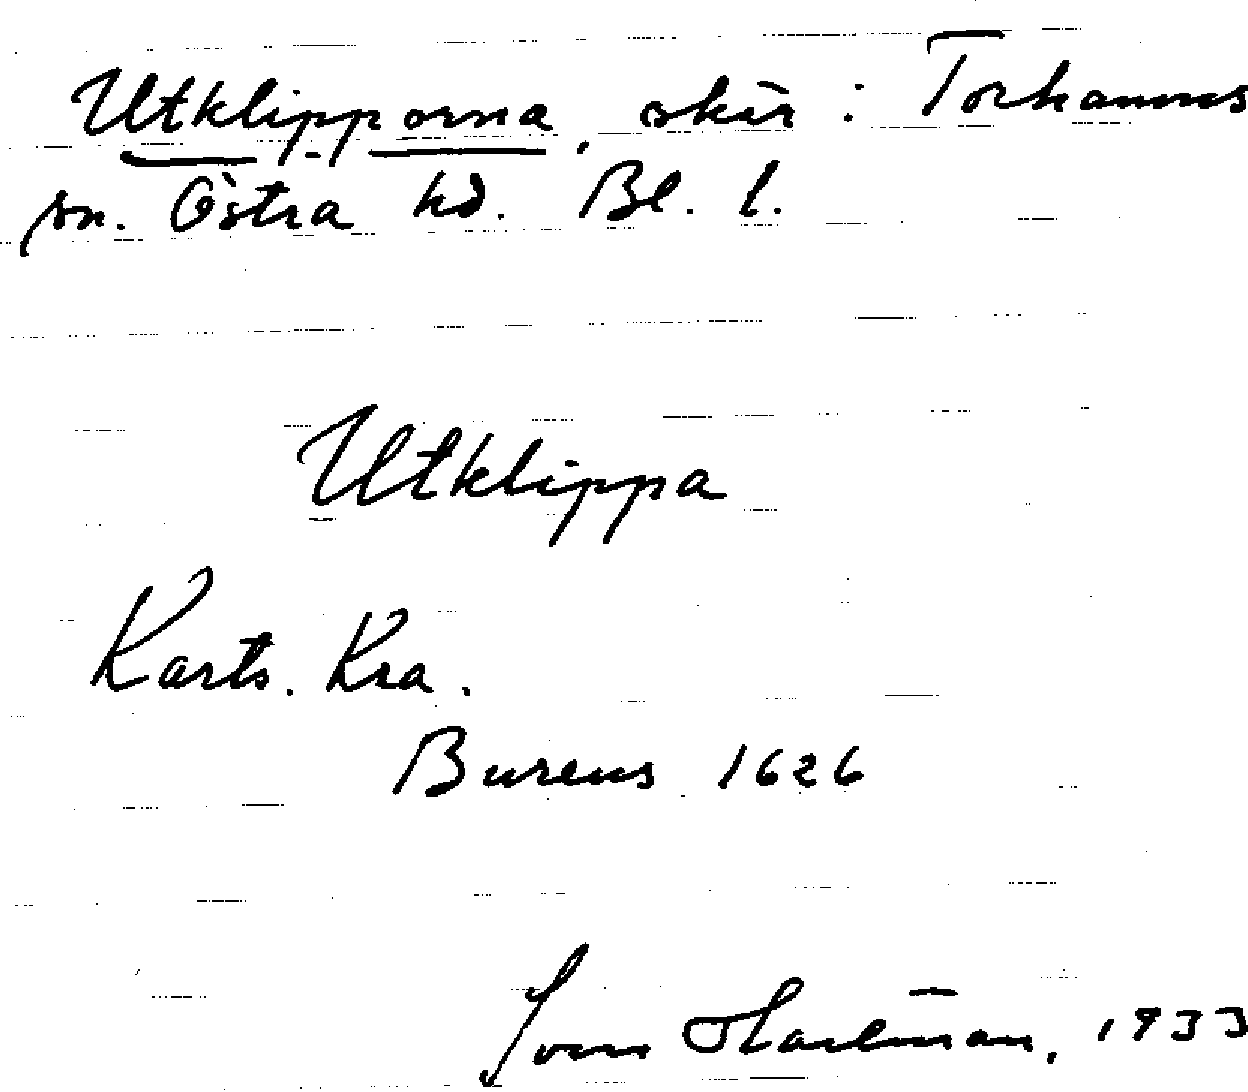 Utklipporna, skär i Torhamns
sn. Östra hd. Bl. l.
Utklippa
Karts. Kra.
Bureus 1626
Sven Hallman, 1933